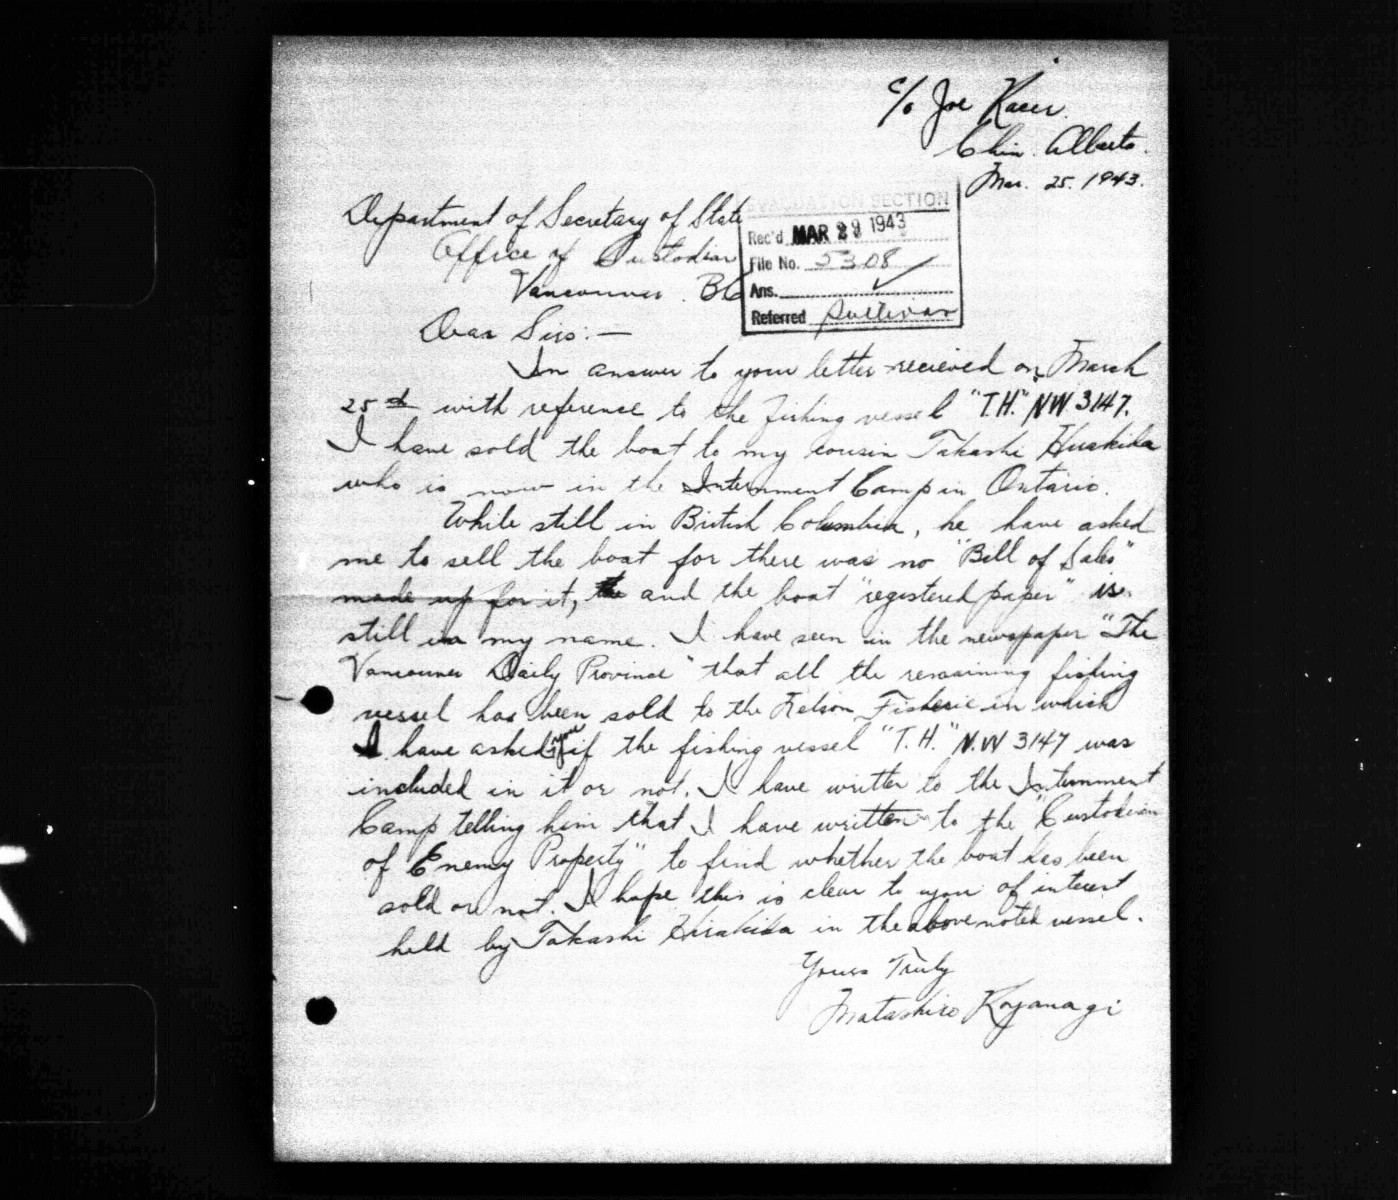 c/o Joe Kacer.
Chin. Alberta.
Mar. 25. 1943.
Department of Secretary of State
Office of Custodian
Vancouver. BC
EVALUATION SECTION
Rec'd MAR 29 1943
File No. 5308
Ans. ✓
Referred Sullivan
Dear Sirs:—
In answer to your letter recieved on March
25th with reference to the fishing vessel "T.H." NW 3147.
I have sold the boat to my cousin Takashi
who is now in the Internment Camp in Ontario.
While still in British Columbia, he have asked
me to sell the boat for there was no "Bill of Sales"
made up for it, and the boat "registered paper" is
still in my name. I have seen in the newspaper "The
Vancouver Daily Province" that all the remaining fishing
vessel has been sold to the Nelson Fisherie in which
I have asked you if the fishing vessel "T.H." N.W 3147 was
included in it or not. I have written to the Internment
Camp telling him that I have written to the "Custodian
of Enemy Property" to find whether the boat has been
sold or not. I hope this is clear to you of interest
held by Takashi Hirakida in the above noted vessel.
Yours Truly
Matashiro Koyanagi